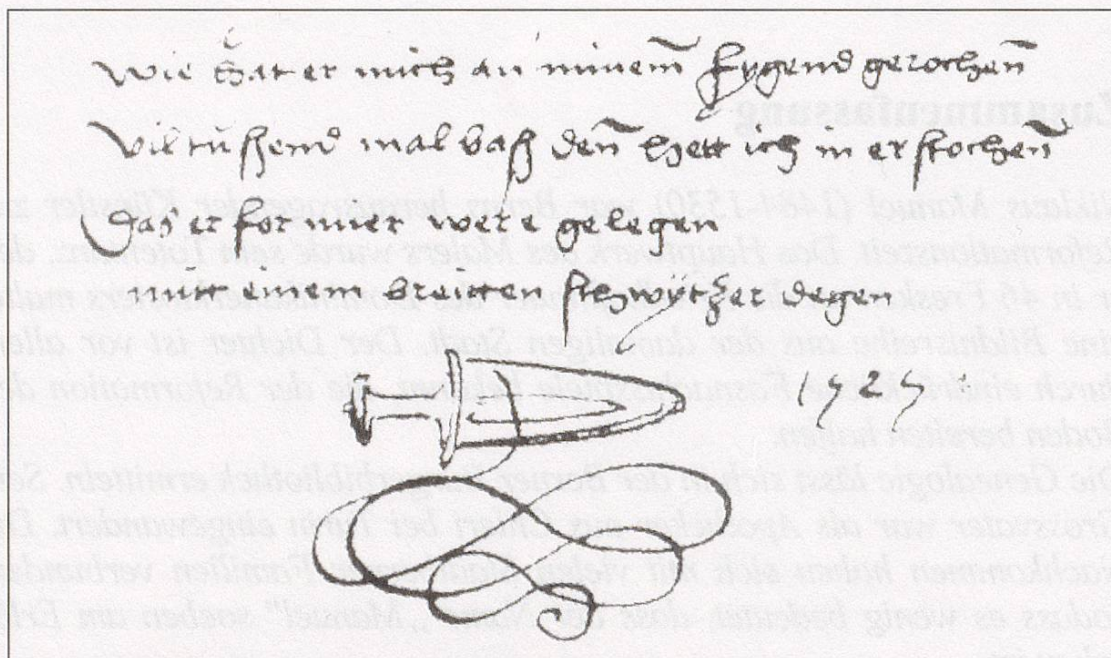 wie hat er mich an minem̄ fygend gerochen̄
Vil tußend mal baß den̄ hett ich in erstochen̄
Das er for mier were gelegen
mitt einem breitten schwytzer degen
1525